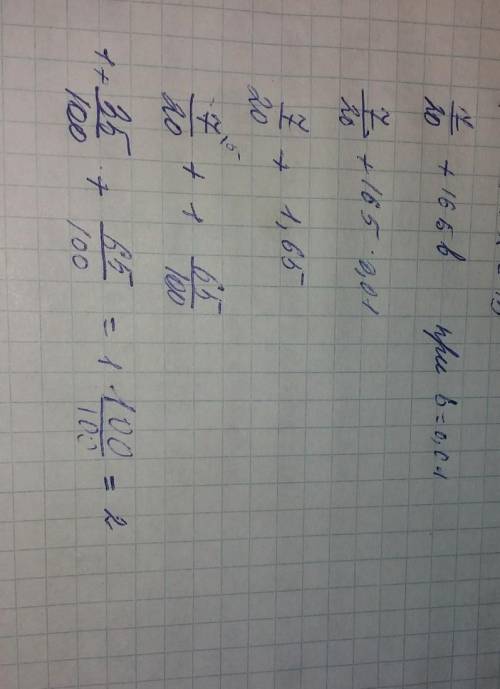 7/20 + 165 в при в = 0,01
7/20 + 165 · 0,01
7/20 + 1,65
7/20 + 1 65/100
1 + 35/100 + 65/100 = 1 100/100 = 2